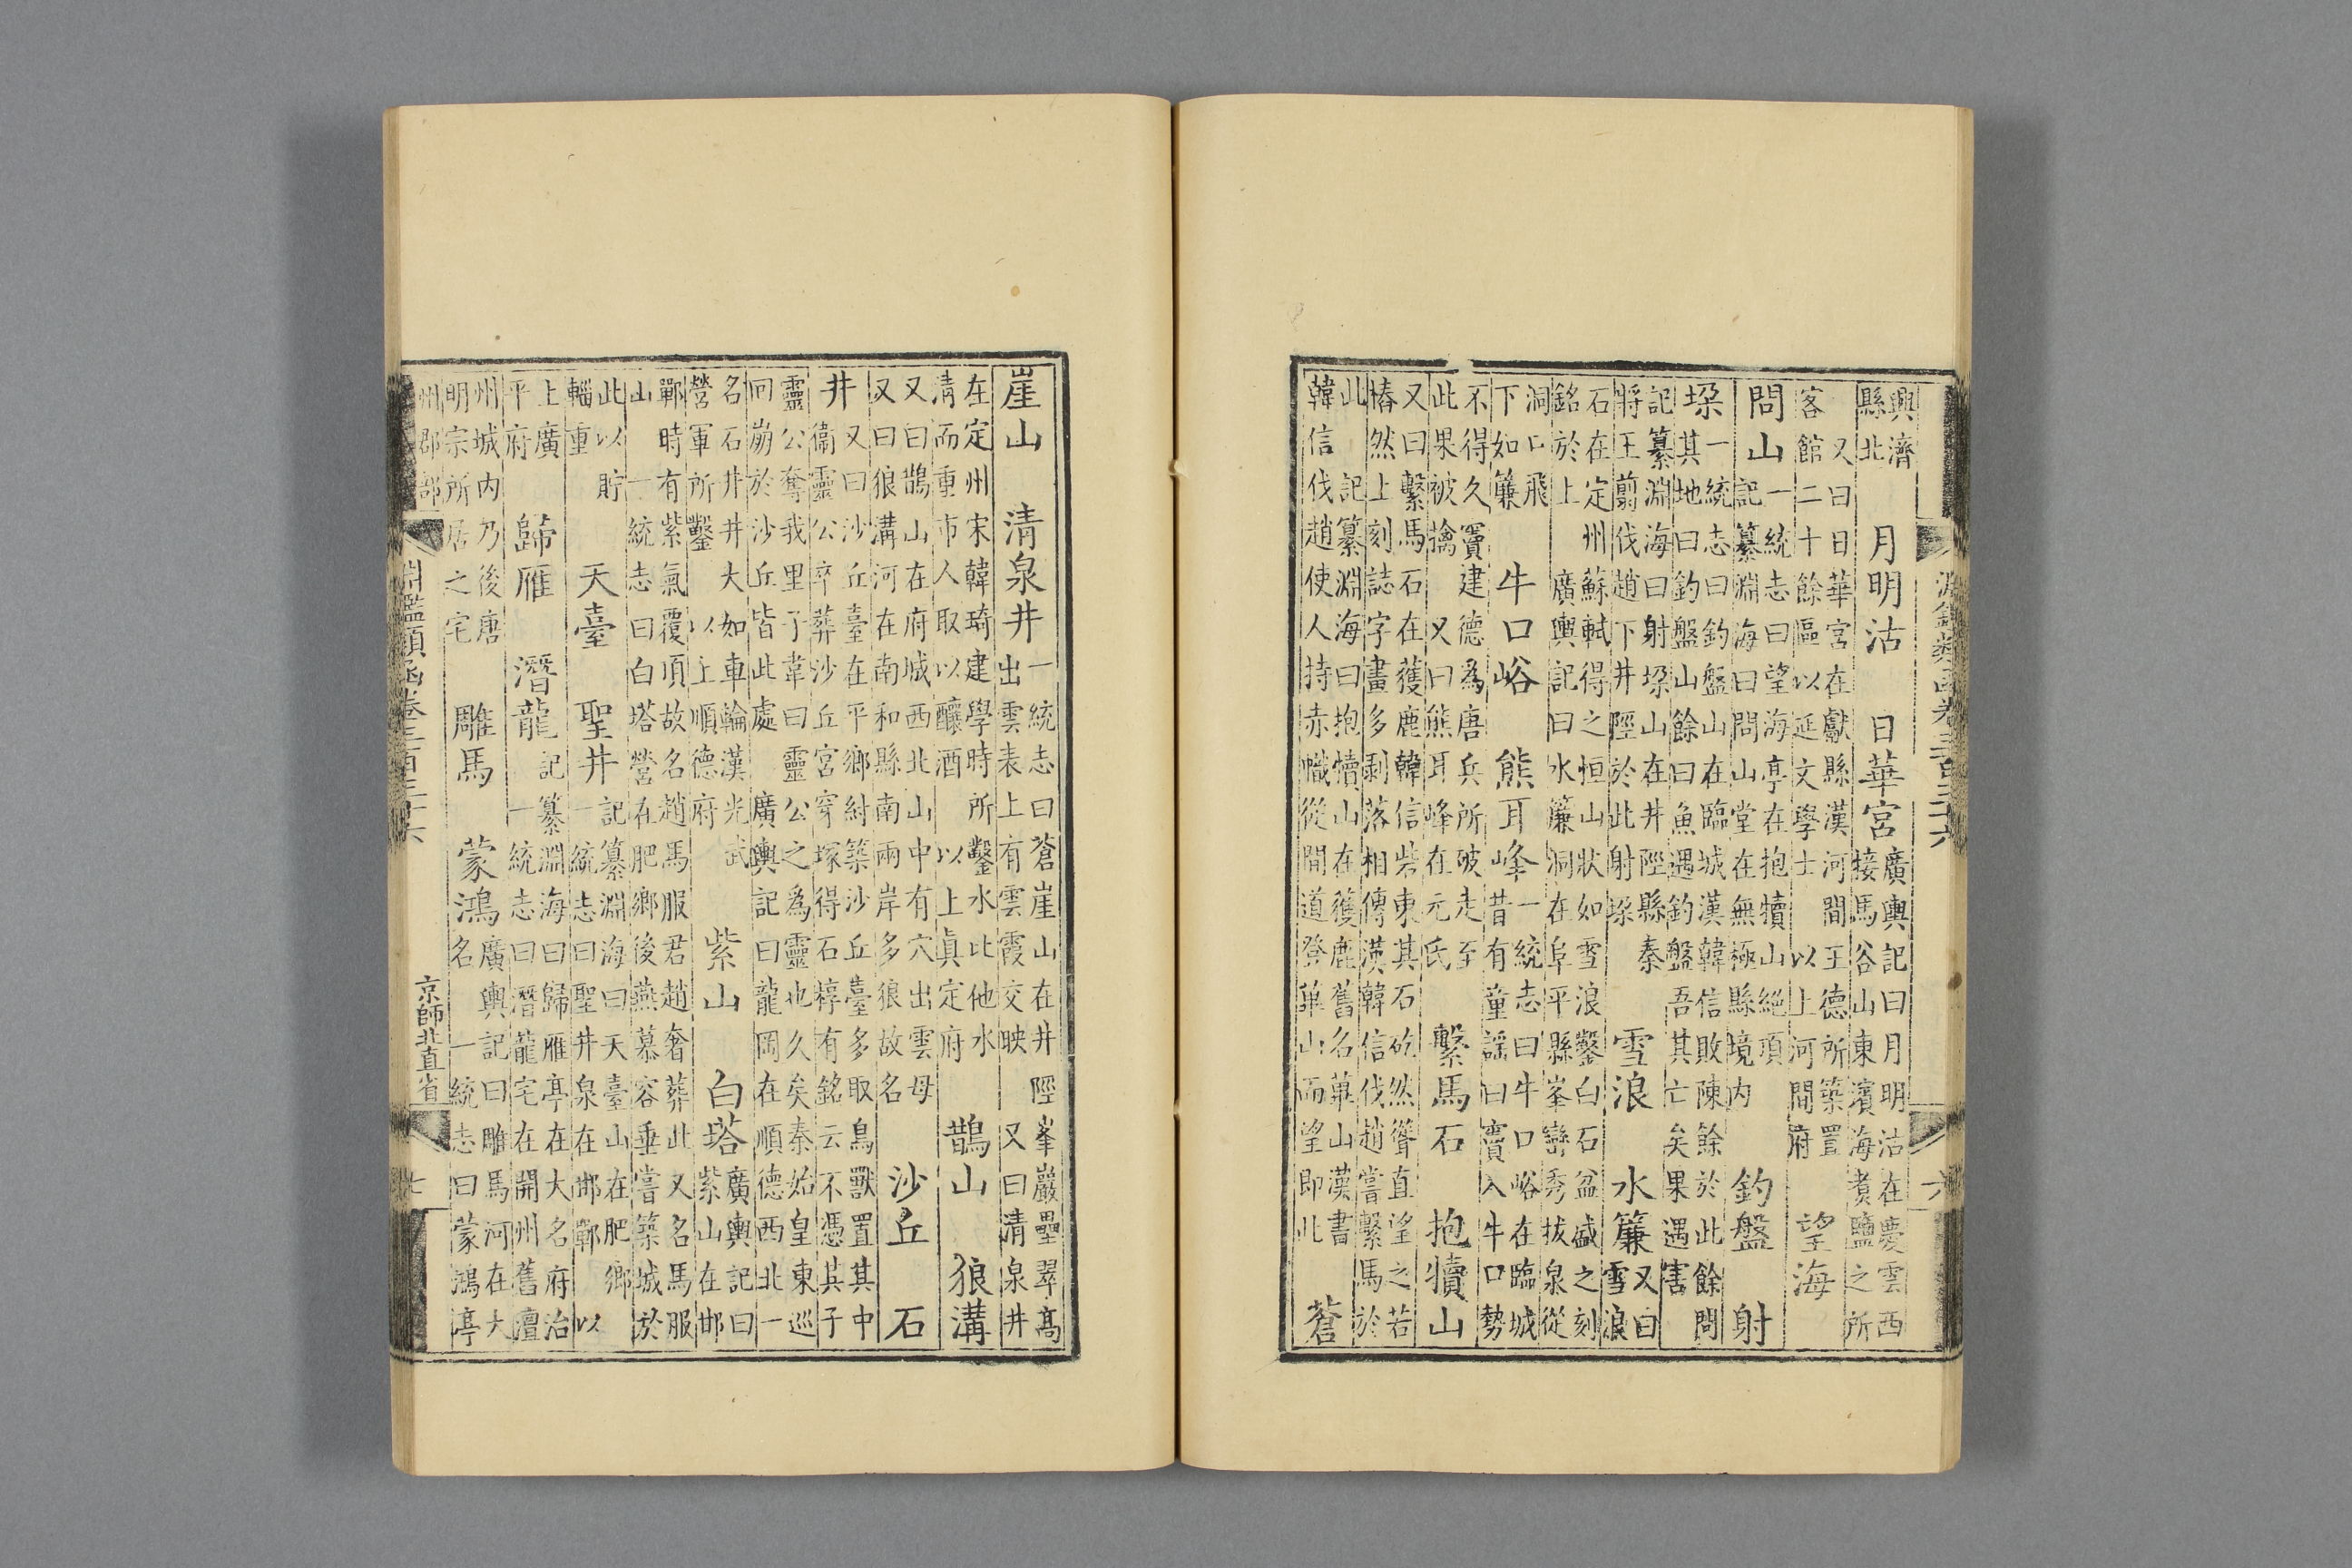 淵鑑類函卷三百三十六
六
興濟縣北 月明沽 日華宮 廣輿記曰月明沽在慶雲西接馬谷山東濱海煮鹽之所
又曰日華宮在獻縣漢河間王德所築置客館二十餘區以延文學士 以上河間府 望海
問山 一統志曰望海亭在抱犢山絕頂 記纂淵海曰問山堂在無極縣境內 釣盤 射
垛 一統志曰釣盤山在臨城漢韓信敗陳餘於此餘問其地曰釣盤山餘曰魚遇釣盤吾其亡矣果遇害
記纂淵海曰射垛山在井陘縣秦將王翦伐趙下井陘於此射垛 雪浪 水簾 又曰雪浪
石在定州蘇軾得之恒山狀如雪浪鑿白石盆盛之刻銘於上 廣輿記曰水簾洞在阜平縣峯巒秀拔泉從
洞口飛下如簾 牛口峪 熊耳峰 一統志曰牛口峪在臨城昔有童謠曰竇入牛口勢
不得久竇建德為唐兵所破走至此果被擒 又曰熊耳峰在元氏 繫馬石 抱犢山
又曰繫馬石在獲鹿韓信砦東其石矻然聳直望之若樁然上刻誌字畫多剝落相傳漢韓信伐趙嘗繫馬於
此 記纂淵海曰抱犢山在獲鹿舊名萆山漢書韓信伐趙使人持赤幟從間道登萆山而望即此 蒼
崖山 清泉井 一統志曰蒼崖山在井陘峯巖壘翠高出雲表上有雲霞交映 又曰清泉井
在定州宋韓琦建學時所鑿水比他水清而重市人取以釀酒 以上眞定府 鵲山 狼溝
又曰鵲山在府城西北山中有穴出雲母又曰狼溝河在南和縣南兩岸多狼故名 沙丘 石
井 又曰沙丘臺在平鄉紂築沙丘臺多取鳥獸置其中衞靈公卒葬沙丘宮穿塚得石椁有銘云不憑其子
靈公奪我里子韋曰靈公之為靈也久矣秦始皇東巡回崩於沙丘皆此處 廣輿記曰龍岡在順德西北一
名石井井大如車輪漢光武營軍所鑿 以上順德府 紫山 白塔 廣輿記曰紫山在邯
鄲時有紫氣覆項故名趙馬服君趙奢葬此又名馬服山 一統志曰白塔營在肥鄉後燕慕容垂嘗築城於
此以貯輜重 天臺 聖井 記纂淵海曰天臺山在肥鄉 一統志曰聖井泉在邯鄲 以
上廣平府 歸雁 潛龍 記纂淵海曰歸雁亭在大名府治 一統志曰潛龍宅在開州舊澶
州城內乃後唐明宗所居之宅 雕馬 蒙鴻 廣輿記曰雕馬河在大名 一統志曰蒙鴻亭
州郡部
淵鑑類函卷三百三十六
京師北直省
七